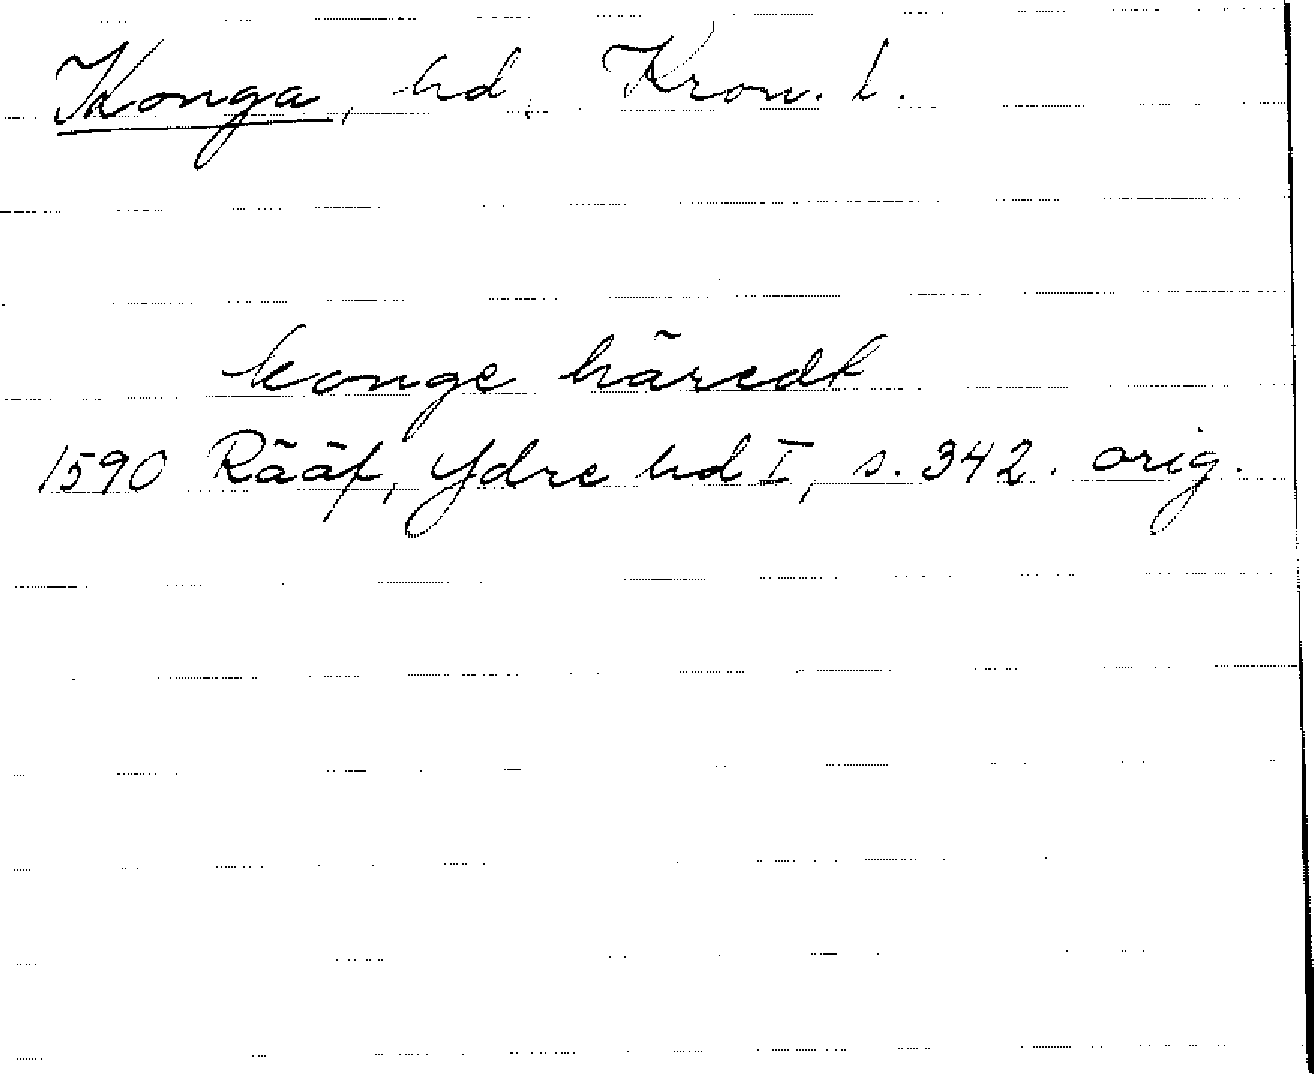 Konga, hd, Kron. l.
konge häredt
1590 Rääf, Ydre hd I, s. 342. orig.